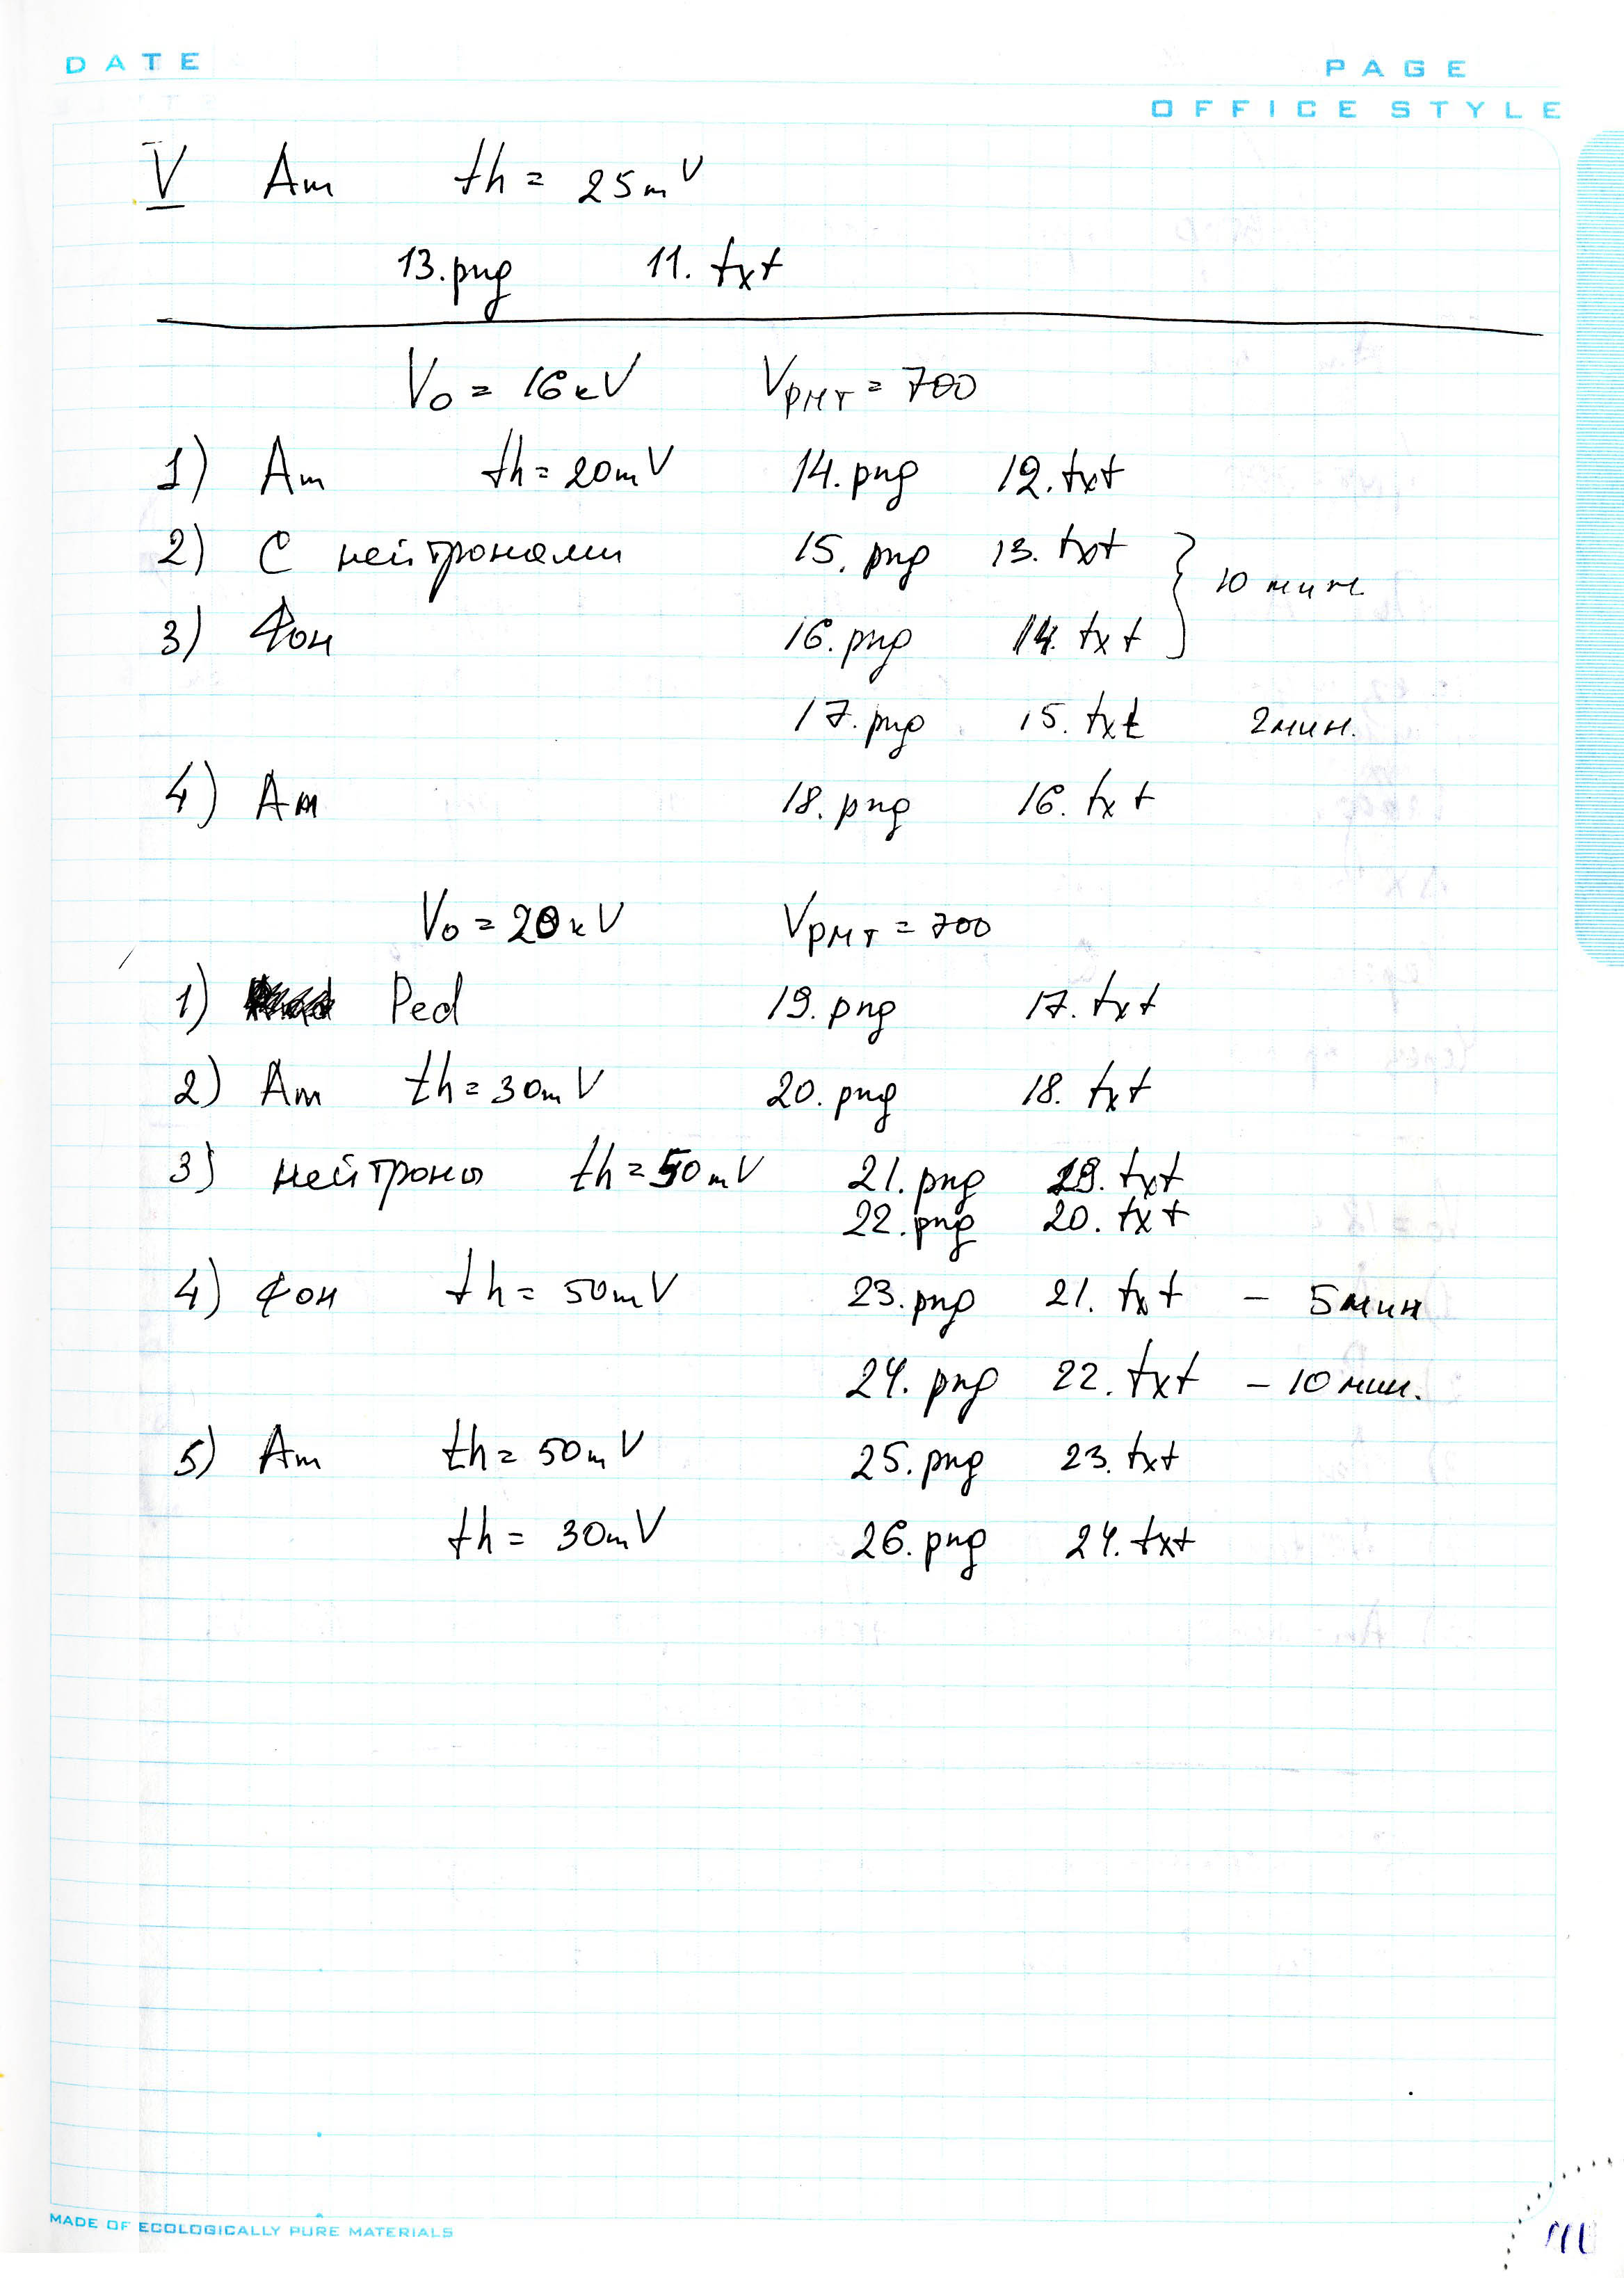 DATE
PAGE
OFFICE STYLE
V Am th = 25mV
13.png 11.txt
V₀ = 16кV VPMT = 700
1) Am th = 20mV 14.png 12.txt
2) С нейтронами 15.png 13.txt
10 мин.
3) Фон 16.png 14.txt
17.png 15.txt 2мин.
4) Am 18.png 16.txt
V₀ = 20кV VPMT = 700
1) Ped 19.png 17.txt
2) Am th = 30mV 20.png 18.txt
3) нейтроны th = 50mV 21.png 19.txt
22.png 20.txt
4) фон th = 50mV 23.png 21.txt – 5мин
24.png 22.txt – 10мин.
5) Am th = 50mV 25.png 23.txt
th = 30mV 26.png 24.txt
MADE OF ECOLOGICALLY PURE MATERIALS